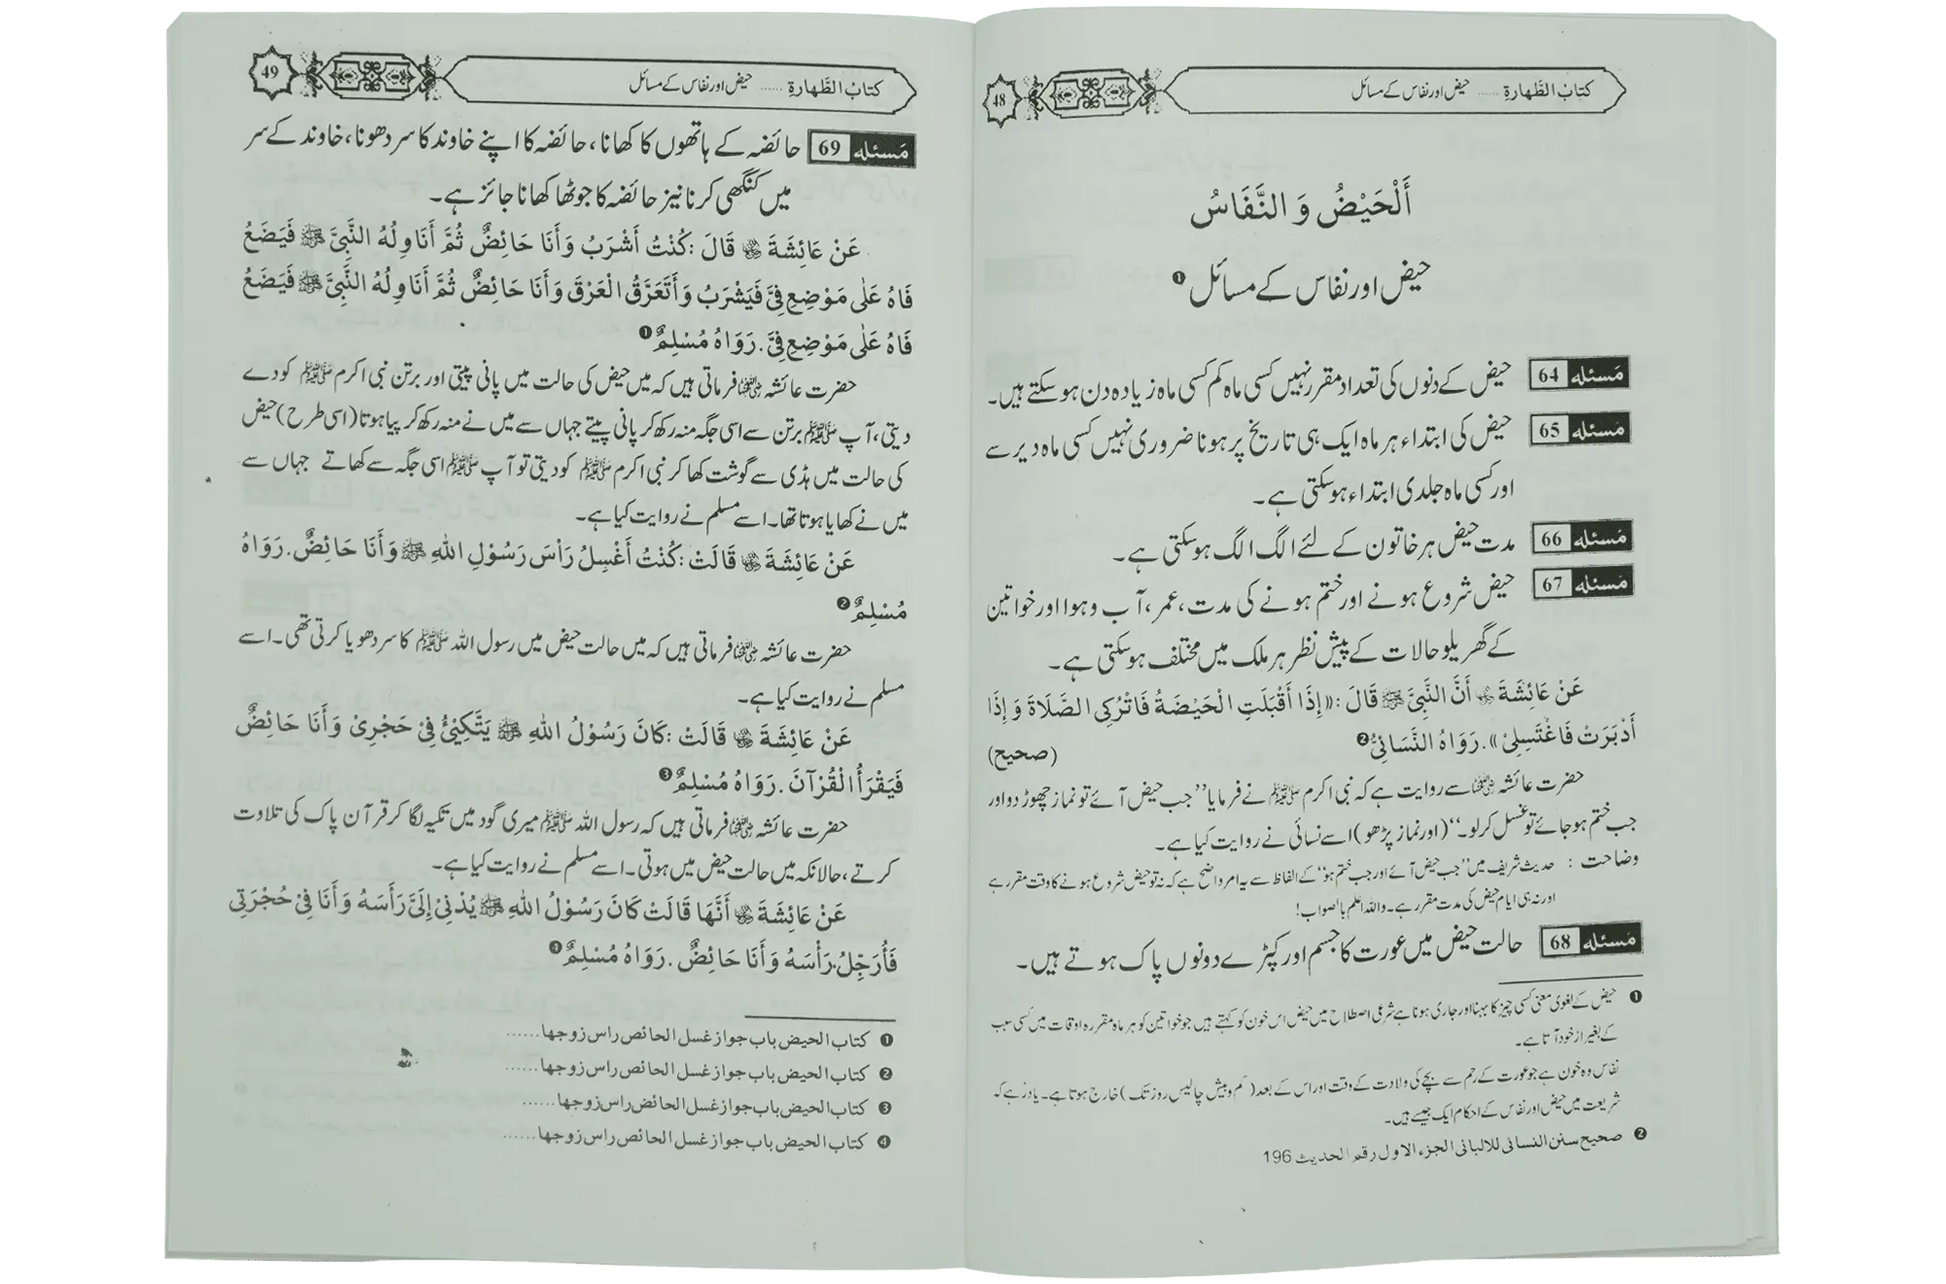 48
کتابُ الطَّهارةِ ...... حیض اور نفاس کے مسائل
أَلْحَيْضُ وَ النَّفَاسُ
حیض اور نفاس کے مسائل ❶
مَسئله 64 حیض کے دنوں کی تعداد مقرر نہیں کسی ماہ کم کسی ماہ زیادہ دن ہو سکتے ہیں۔
مَسئله 65 حیض کی ابتداء ہر ماہ ایک ہی تاریخ پر ہونا ضروری نہیں کسی ماہ دیر سے
اور کسی ماہ جلدی ابتداء ہو سکتی ہے۔
مَسئله 66 مدت حیض ہر خاتون کے لئے الگ الگ ہو سکتی ہے۔
مَسئله 67 حیض شروع ہونے اور ختم ہونے کی مدت، عمر، آب و ہوا اور خواتین
کے گھریلو حالات کے پیش نظر ہر ملک میں مختلف ہو سکتی ہے۔
عَنْ عَائِشَةَ رضی اللہ عنہا أَنَّ النَّبِيَّ ﷺ قَالَ : ((إِذَا أَقْبَلَتِ الْحَيْضَةُ فَاتْرُكِى الصَّلَاةَ وَ إِذَا
أَدْبَرَتْ فَاغْتَسِلِيْ)). رَوَاهُ النَّسَائِيُّ❷ (صحیح)
حضرت عائشہ رضی اللہ عنہا سے روایت ہے کہ نبی اکرم ﷺ نے فرمایا ’’جب حیض آئے تو نماز چھوڑ دو اور
جب ختم ہو جائے تو غسل کر لو۔‘‘ (اور نماز پڑھو) اسے نسائی نے روایت کیا ہے۔
وضاحت : حدیث شریف میں ’’جب حیض آئے اور جب ختم ہو‘‘ کے الفاظ سے یہ امر واضح ہے کہ نہ تو حیض شروع ہونے کا وقت مقرر ہے
اور نہ ہی ایام حیض کی مدت مقرر ہے۔ واللہ اعلم بالصواب!
مَسئله 68 حالت حیض میں عورت کا جسم اور کپڑے دونوں پاک ہوتے ہیں۔
❶ حیض کے لغوی معنی کسی چیز کا بہنا اور جاری ہونا ہے شرعی اصطلاح میں حیض اس خون کو کہتے ہیں جو خواتین کو ہر ماہ مقررہ اوقات میں کسی سبب
کے بغیر از خود آتا ہے۔
نفاس وہ خون ہے جو عورت کے رحم سے بچے کی ولادت کے وقت اور اس کے بعد (کم و بیش چالیس روز تک) خارج ہوتا ہے۔ یاد رہے کہ
شریعت میں حیض اور نفاس کے احکام ایک جیسے ہیں۔
❷ صحیح سنن النسائی للالبانی الجزء الاول رقم الحدیث 196
49
کتابُ الطَّهارةِ ...... حیض اور نفاس کے مسائل
مَسئله 69 حائضہ کے ہاتھوں کا کھانا، حائضہ کا اپنے خاوند کا سر دھونا، خاوند کے سر
میں کنگھی کرنا نیز حائضہ کا جوٹھا کھانا جائز ہے۔
عَنْ عَائِشَةَ رضی اللہ عنہا قَالَ : كُنْتُ أَشْرَبُ وَ أَنَا حَائِضٌ ثُمَّ أُنَاوِلُهُ النَّبِيَّ ﷺ فَيَضَعُ
فَاهُ عَلٰى مَوْضِعِ فِيَّ فَيَشْرَبُ وَ أَتَعَرَّقُ الْعَرْقَ وَ أَنَا حَائِضٌ ثُمَّ أُنَاوِلُهُ النَّبِيَّ ﷺ فَيَضَعُ
فَاهُ عَلٰى مَوْضِعِ فِيَّ . رَوَاهُ مُسْلِمٌ❶
حضرت عائشہ رضی اللہ عنہا فرماتی ہیں کہ میں حیض کی حالت میں پانی پیتی اور برتن نبی اکرم ﷺ کو دے
دیتی، آپ ﷺ برتن سے اسی جگہ منہ رکھ کر پانی پیتے جہاں سے میں نے منہ رکھ کر پیا ہوتا (اسی طرح) حیض
کی حالت میں ہڈی سے گوشت کھا کر نبی اکرم ﷺ کو دیتی تو آپ ﷺ اسی جگہ سے کھاتے جہاں سے
میں نے کھایا ہوتا تھا۔ اسے مسلم نے روایت کیا ہے۔
عَنْ عَائِشَةَ رضی اللہ عنہا قَالَتْ : كُنْتُ أَغْسِلُ رَاْسَ رَسُوْلِ اللهِ ﷺ وَ أَنَا حَائِضٌ . رَوَاهُ
مُسْلِمٌ❷
حضرت عائشہ رضی اللہ عنہا فرماتی ہیں کہ میں حالت حیض میں رسول اللہ ﷺ کا سر دھویا کرتی تھی۔ اسے
مسلم نے روایت کیا ہے۔
عَنْ عَائِشَةَ رضی اللہ عنہا قَالَتْ : كَانَ رَسُوْلُ اللهِ ﷺ يَتَّكِئُ فِيْ حَجْرِيْ وَ أَنَا حَائِضٌ
فَيَقْرَأُ الْقُرْآنَ . رَوَاهُ مُسْلِمٌ❸
حضرت عائشہ رضی اللہ عنہا فرماتی ہیں کہ رسول اللہ ﷺ میری گود میں تکیہ لگا کر قرآن پاک کی تلاوت
کرتے، حالانکہ میں حالت حیض میں ہوتی۔ اسے مسلم نے روایت کیا ہے۔
عَنْ عَائِشَةَ رضی اللہ عنہا أَنَّهَا قَالَتْ كَانَ رَسُوْلُ اللهِ ﷺ يُدْنِيْ إِلَيَّ رَأْسَهُ وَ أَنَا فِيْ حُجْرَتِي
فَأُرَجِّلُ رَأْسَهُ وَ أَنَا حَائِضٌ . رَوَاهُ مُسْلِمٌ❹
❶ کتاب الحیض باب جواز غسل الحائض راس زوجها......
❷ کتاب الحیض باب جواز غسل الحائض راس زوجها......
❸ کتاب الحیض باب جواز غسل الحائض راس زوجها......
❹ کتاب الحیض باب جواز غسل الحائض راس زوجها......